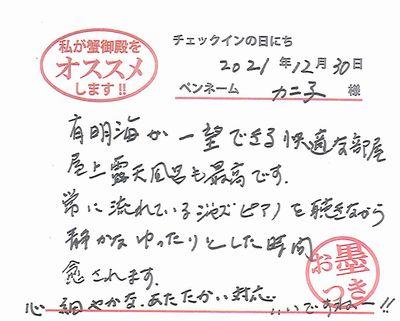 私が蟹御殿を
オススメ
します!!
チェックインの日にち
2021年12月30日
ペンネーム カニ子 様
有明海が一望できる快適な部屋
屋上露天風呂も最高です。
常に流れているジャズピアノを聴きながら
静かなゆったりとした時間
癒されます。
心細やかな、あたたかい対応
いいですねー!!
お墨つき